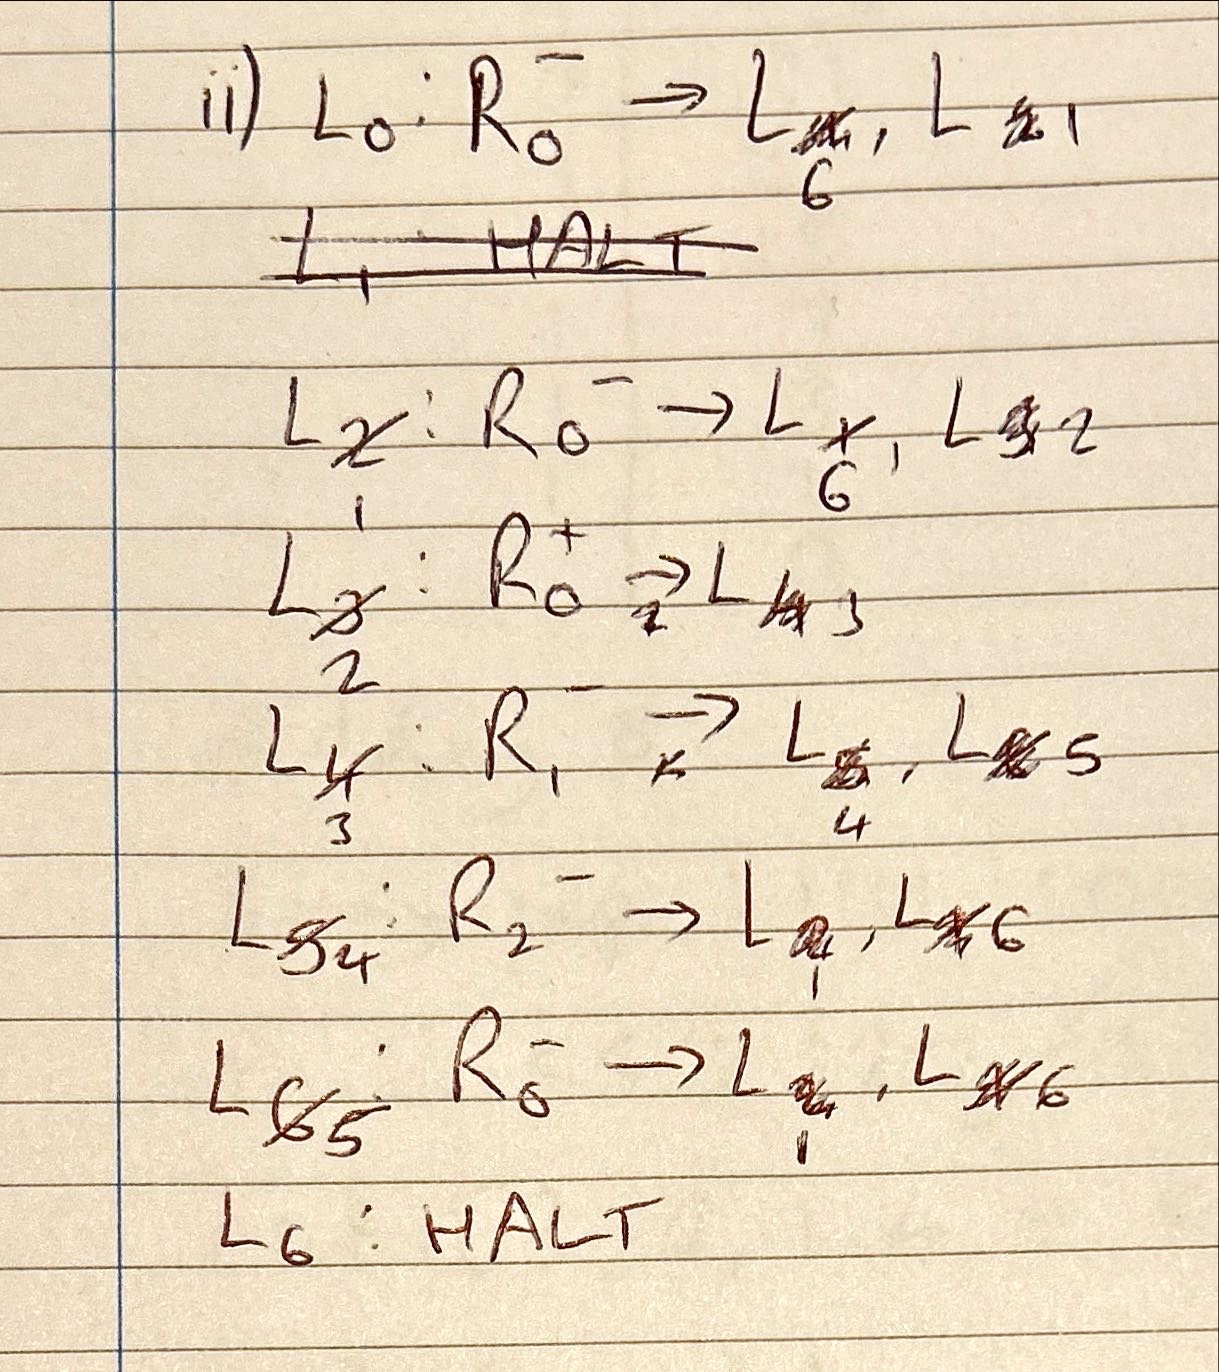 ii) L0 : R0⁻ → L6, L1
L1 HALT
L1 : R0⁻ → L6, L2
L2 : R0⁺ → L3
L3 : R1⁻ → L4, L5
L4 : R2⁻ → L1, L6
L5 : R0⁻ → L1, L6
L6 : HALT